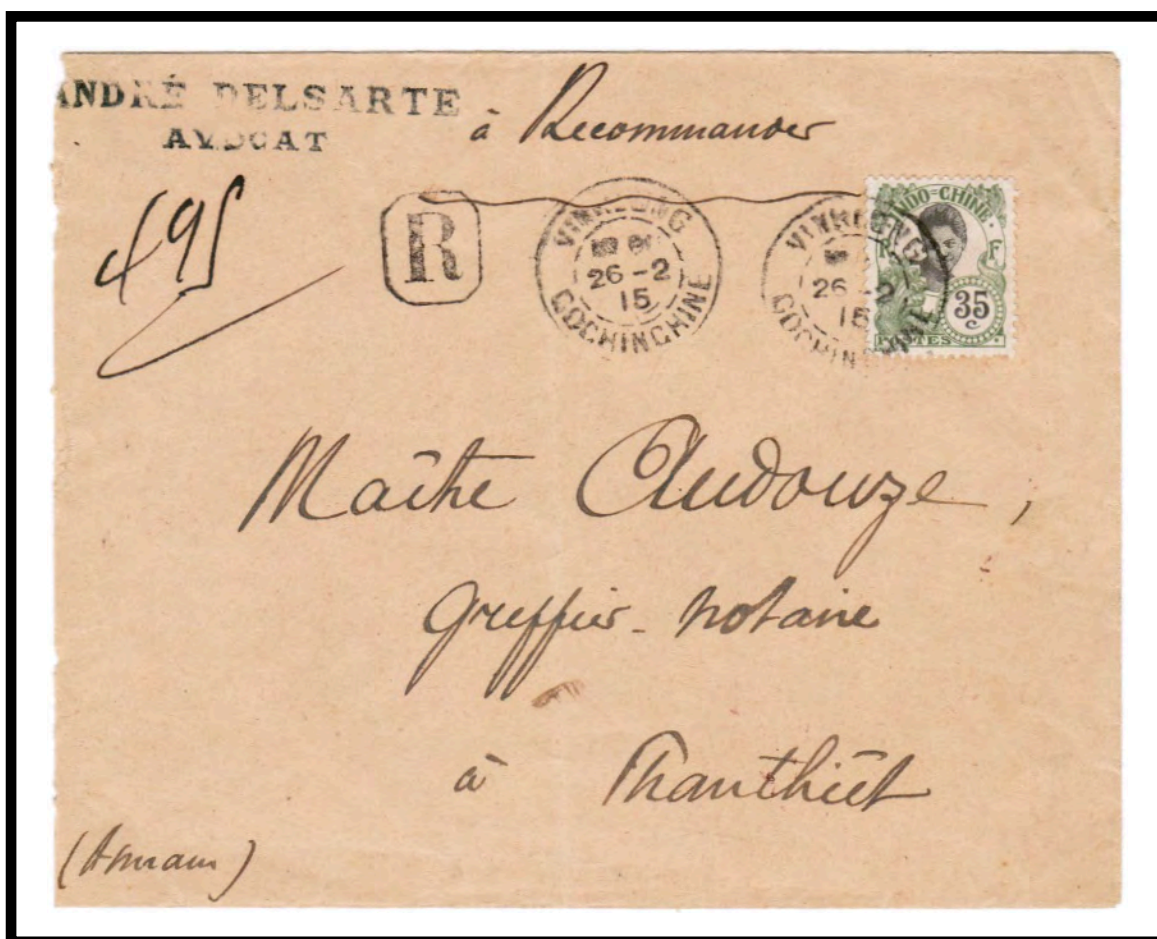 ANDRÉ DELSARTE
AVOCAT
à Recommander
495
R
VINHLONG
26 -2
15
COCHINCHINE
VINHLONG
26 -2
15
COCHINCHINE
INDO=CHINE
R F
35
c
POSTES
Maître Audouze,
Greffier-notaire
à Phanthiêt
(Annam)